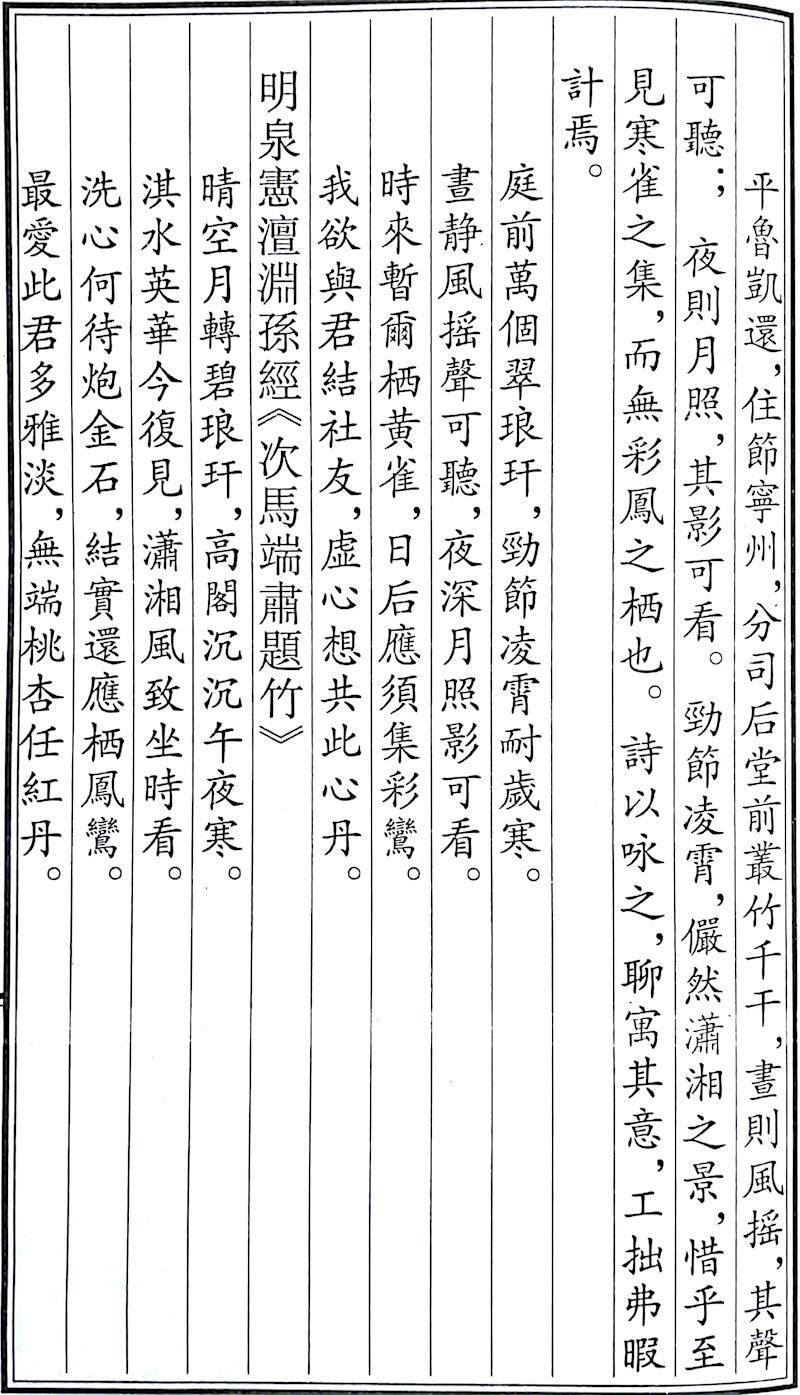 平魯凱還，住節寧州，分司后堂前叢竹千干，晝則風摇，其聲
可聽；夜則月照，其影可看。勁節凌霄，儼然瀟湘之景，惜乎至
見寒雀之集，而無彩鳳之栖也。詩以咏之，聊寓其意，工拙弗暇
計焉。
庭前萬個翠琅玕，勁節凌霄耐歲寒。
晝静風摇聲可聽，夜深月照影可看。
時來暫爾栖黄雀，日后應須集彩鸞。
我欲與君結社友，虚心想共此心丹。
明泉憲澶淵孫經《次馬端肅題竹》
晴空月轉碧琅玕，高閣沉沉午夜寒。
淇水英華今復見，瀟湘風致坐時看。
洗心何待炮金石，結實還應栖鳳鸞。
最愛此君多雅淡，無端桃杏任紅丹。